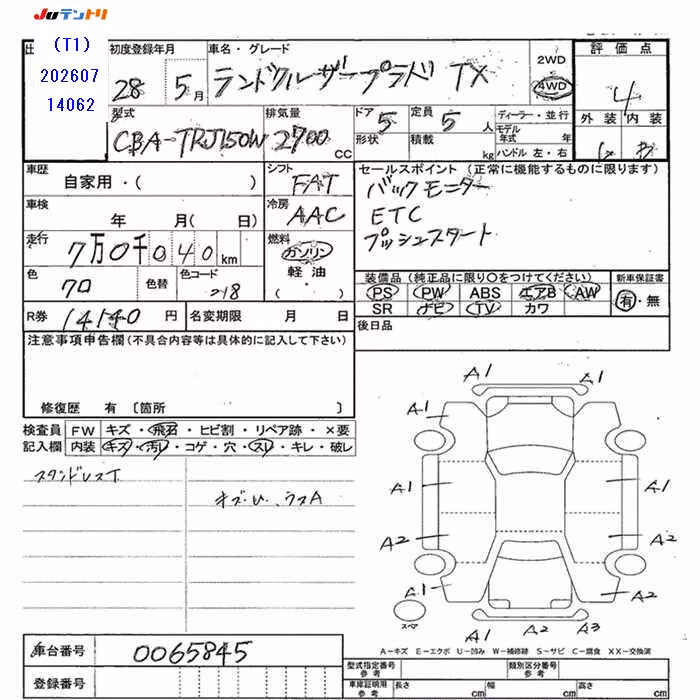 Juテントリ
(T1)
202607
14062
初度登録年月
28 5月
車名・グレード
ランドクルーザープラド TX
2WD
4WD
評価点
4
外装 内装
型式
CBA-TRJ150W
排気量
2700 CC
ドア 5
形状
定員 5 人
積載 kg
ディーラー・並行
モデル年式 年
ハンドル 左・右
車歴
自家用・( )
シフト
FAT
車検
年 月( 日)
冷房
AAC
走行
7万0千040 km
燃料
ガソリン
軽油
( )
色
クロ
色替
色コード
218
R券 14140 円
名変期限 月 日
セールスポイント (正常に機能するものに限ります)
バックモニター
ETC
プッシュスタート
装備品(純正品に限り○をつけてください)
新車保証書
PS PW ABS エアB AW
有・無
SR ナビ TV カワ
後日品
注意事項申告欄(不具合内容等は具体的に記入して下さい)
修復歴 有 〔箇所 〕
検査員
記入欄
FW キズ・飛石・ヒビ割・リペア跡・×要
内装 キズ・汚レ・コゲ・穴・スレ・キレ・破レ
キズ・U、ウスA
A1 A1
A1 A1
A1 A1
A2 A2
A1 A1
スペア
A1 A2 A3
A－キズ E－エクボ U－凹み W－補修跡 S－サビ C－腐食 XX－交換済
車台番号 0065845
登録番号
型式指定番号
参考
類別区分番号
参考
車庫証明用
参考
長さ cm 幅 cm 高さ cm